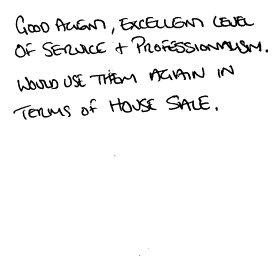 GOOD AGENT, EXCELLENT LEVEL
OF SERVICE + PROFESSIONALISM.
WOULD USE THEM AGAIN IN
TERMS OF HOUSE SALE.